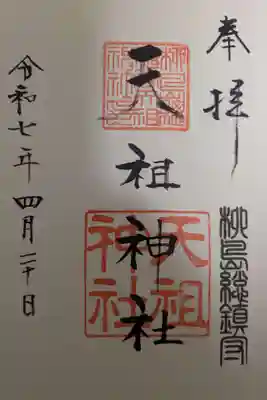 奉拝
柳島総鎮守
天祖神社
天祖
神社
令和七年四月二十日